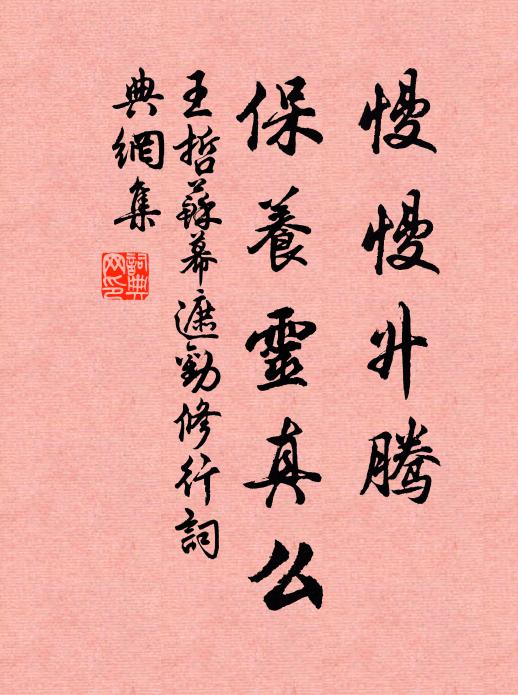 慢慢升腾
保養靈真么
王哲蘇幕遮勸修行詞
典網集
詞典網印